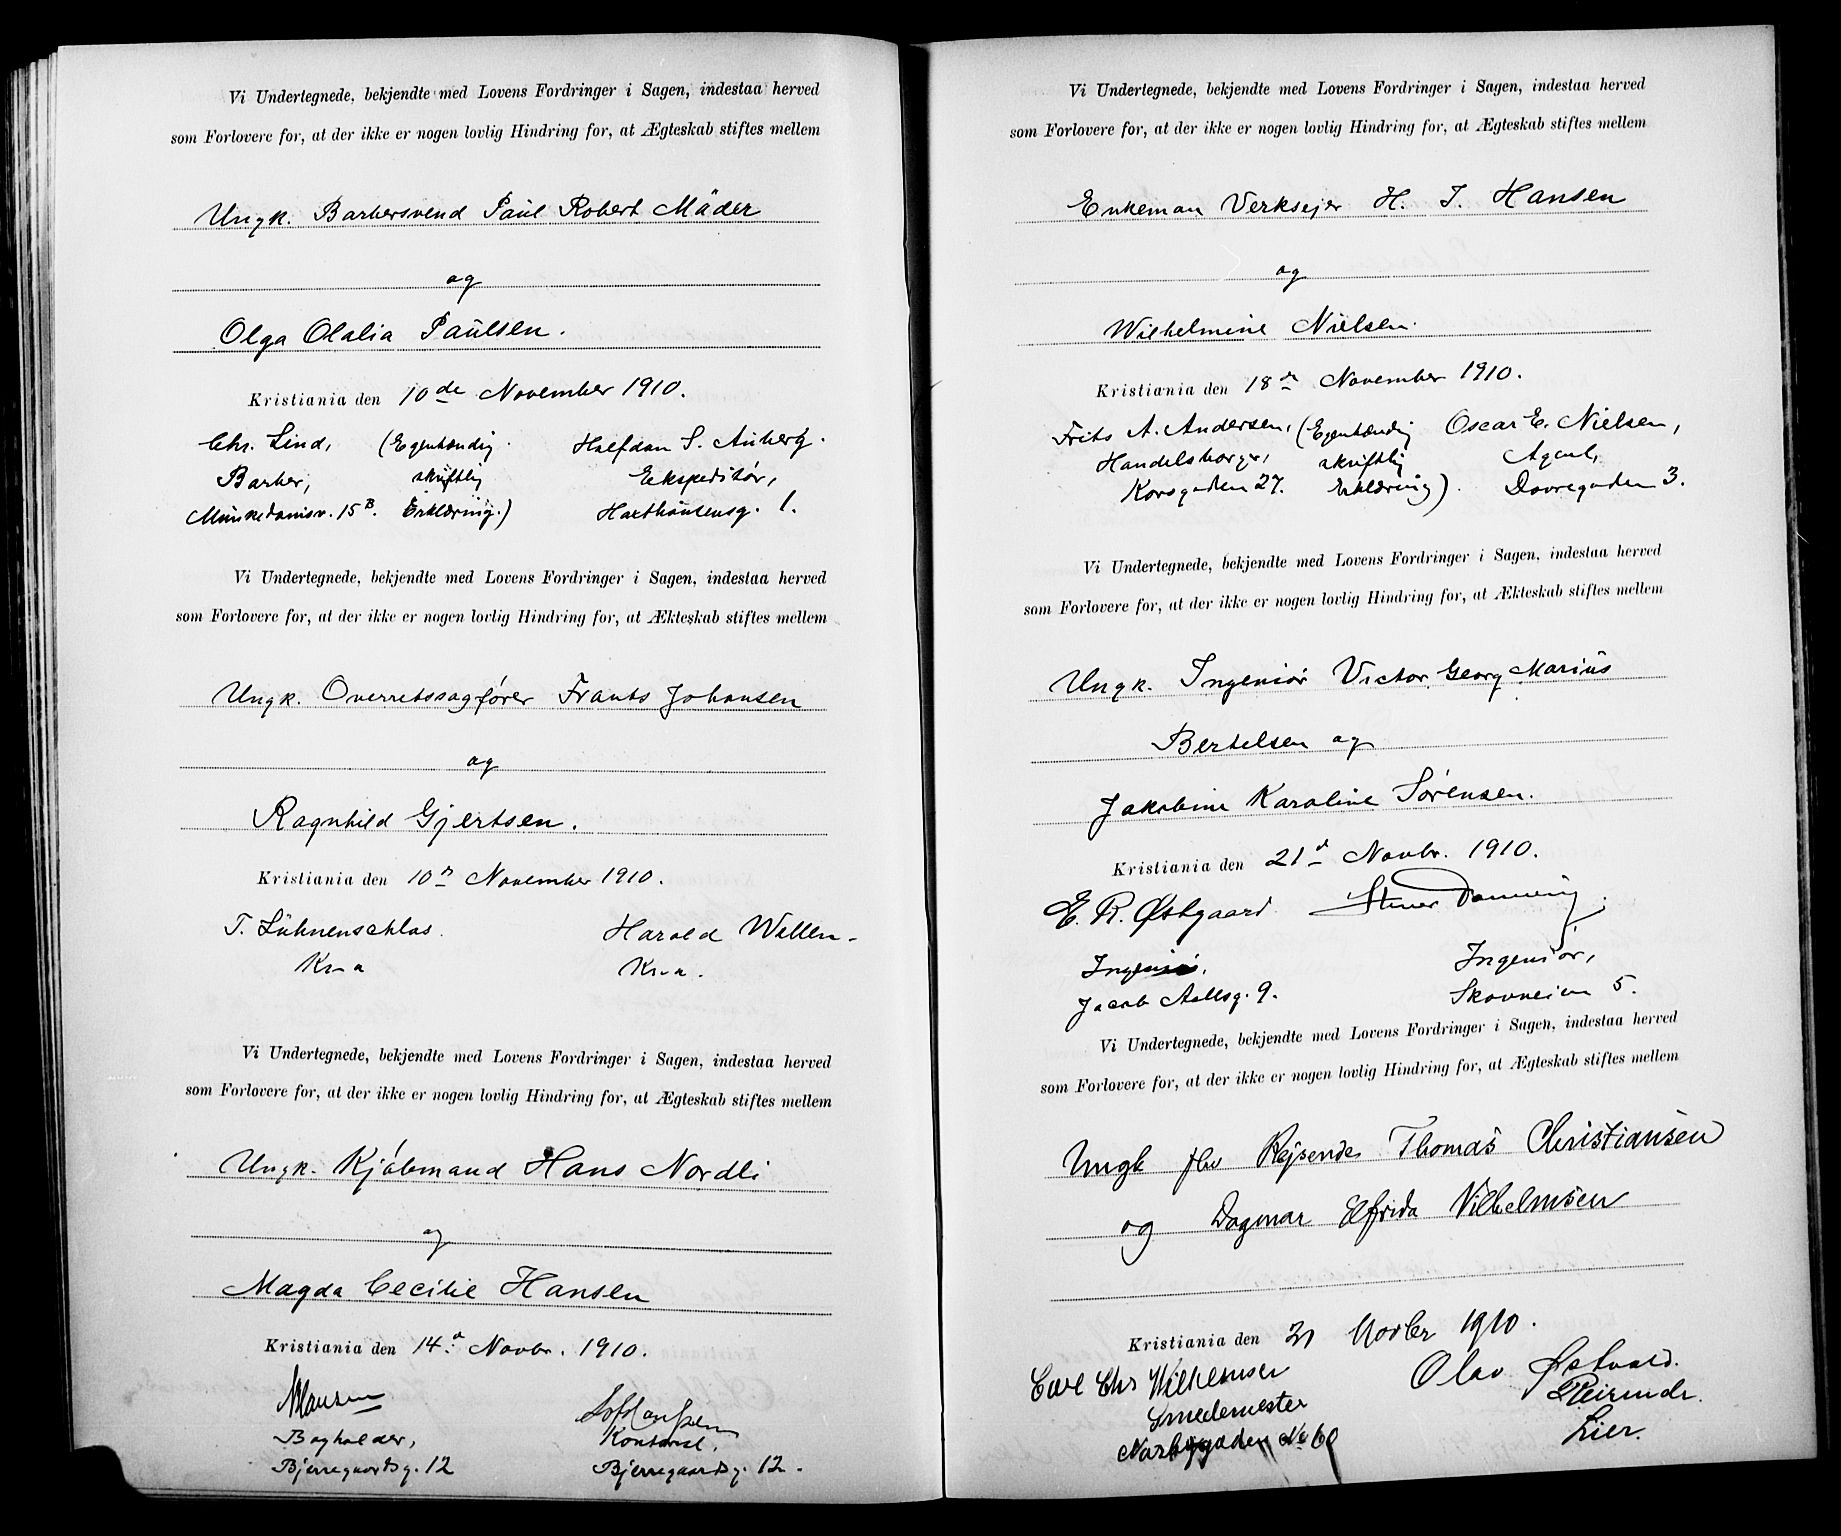 Vi Undertegnede, bekjendte med Lovens Fordringer i Sagen, indestaa herved
som Forlovere for, at der ikke er nogen lovlig Hindring for, at Ægteskab stiftes mellem
Ungk. Barbersvend Paul Robert Mäder
og
Olga Olalia Paulsen.
Kristiania den 10de November 1910.
Chr. Lind, (Egenhændig Halfdan S. Auberg.
Barber, skriftlig Ekspeditør,
Munkedamsv. 15B. Erklæring.) Haxthausensg. 1.
Vi Undertegnede, bekjendte med Lovens Fordringer i Sagen, indestaa herved
som Forlovere for, at der ikke er nogen lovlig Hindring for, at Ækteskab stiftes mellem
Ungk. Overretssagfører Frants Johansen
og
Ragnhild Gjertsen.
Kristiania den 10de November 1910.
T. Lühnenschlos. Harald Willen
Kr-a Kr-a.
Vi Undertegnede, bekjendte med Lovens Fordringer i Sagen, indestaa herved
som Forlovere for, at der ikke er nogen lovlig Hindring for, at Ægteskab stiftes mellem
Ungk. Kjøbmand Hans Nordli
og
Magda Cecilie Hansen
Kristiania den 14d Novbr. 1910.
Hansen
Bogholder, Kontorist,
Bjerregaardsg. 12 Bjerregaardsg. 12.
Vi Undertegnede, bekjendte med Lovens Fordringer i Sagen, indestaa herved
som Forlovere for, at der ikke er nogen lovlig Hindring for, at Ægteskab stiftes mellem
Enkeman Verksejer H. J. Hansen
og
Wilhelmine Nielsen.
Kristiania den 18de November 1910.
Frits A. Andersen, (Egenhændig Oscar E. Nielsen,
Handelsborger, skriftlig Agent,
Korsgaden 27. Erklæring). Dovregaden 3.
Vi Undertegnede, bekjendte med Lovens Fordringer i Sagen, indestaa herved
som Forlovere for, at der ikke er nogen lovlig Hindring for, at Ækteskab stiftes mellem
Ungk. Ingeniør Victor Georg Marius
Bertelsen og
Jakobine Karoline Sørensen.
Kristiania den 21d Novbr. 1910.
E. R. Østgaard
Ingeniør, Ingeniør,
Jacob Aallsg. 9. Skovveien 5.
Vi Undertegnede, bekjendte med Lovens Fordringer i Sagen, indestaa herved
som Forlovere for, at der ikke er nogen lovlig Hindring for, at Ægteskab stiftes mellem
Ungk fhv Rejsende Thomas Christiansen
og Dagmar Elfrida Vilhelmsen
Kristiania den 21 Novbr 1910.
Carl Chr Wilhelmsen Olav Østvold.
Smedemester
Norbygaden No 60 Lier.